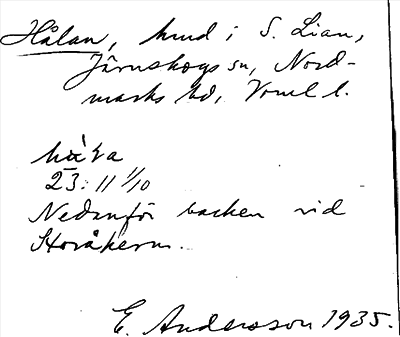 Hålan, hmd i S. Lian,
Järnskogs sn, Nord-
marks hd, Vrml l.
23: 11 1/10
Nedanför backen vid
Storåkern.
E. Andersson 1935.